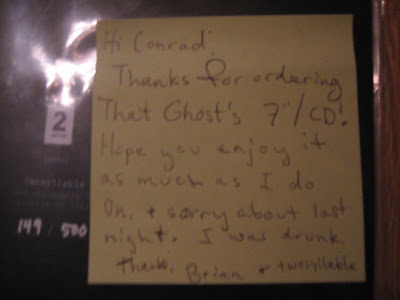 Hi Conrad!
Thanks for ordering
That Ghost's 7"/CD!
Hope you enjoy it
as much as I do
Oh, + sorry about last
night. I was drunk
Thanks, Brian + twosyllable
2
149 / 500